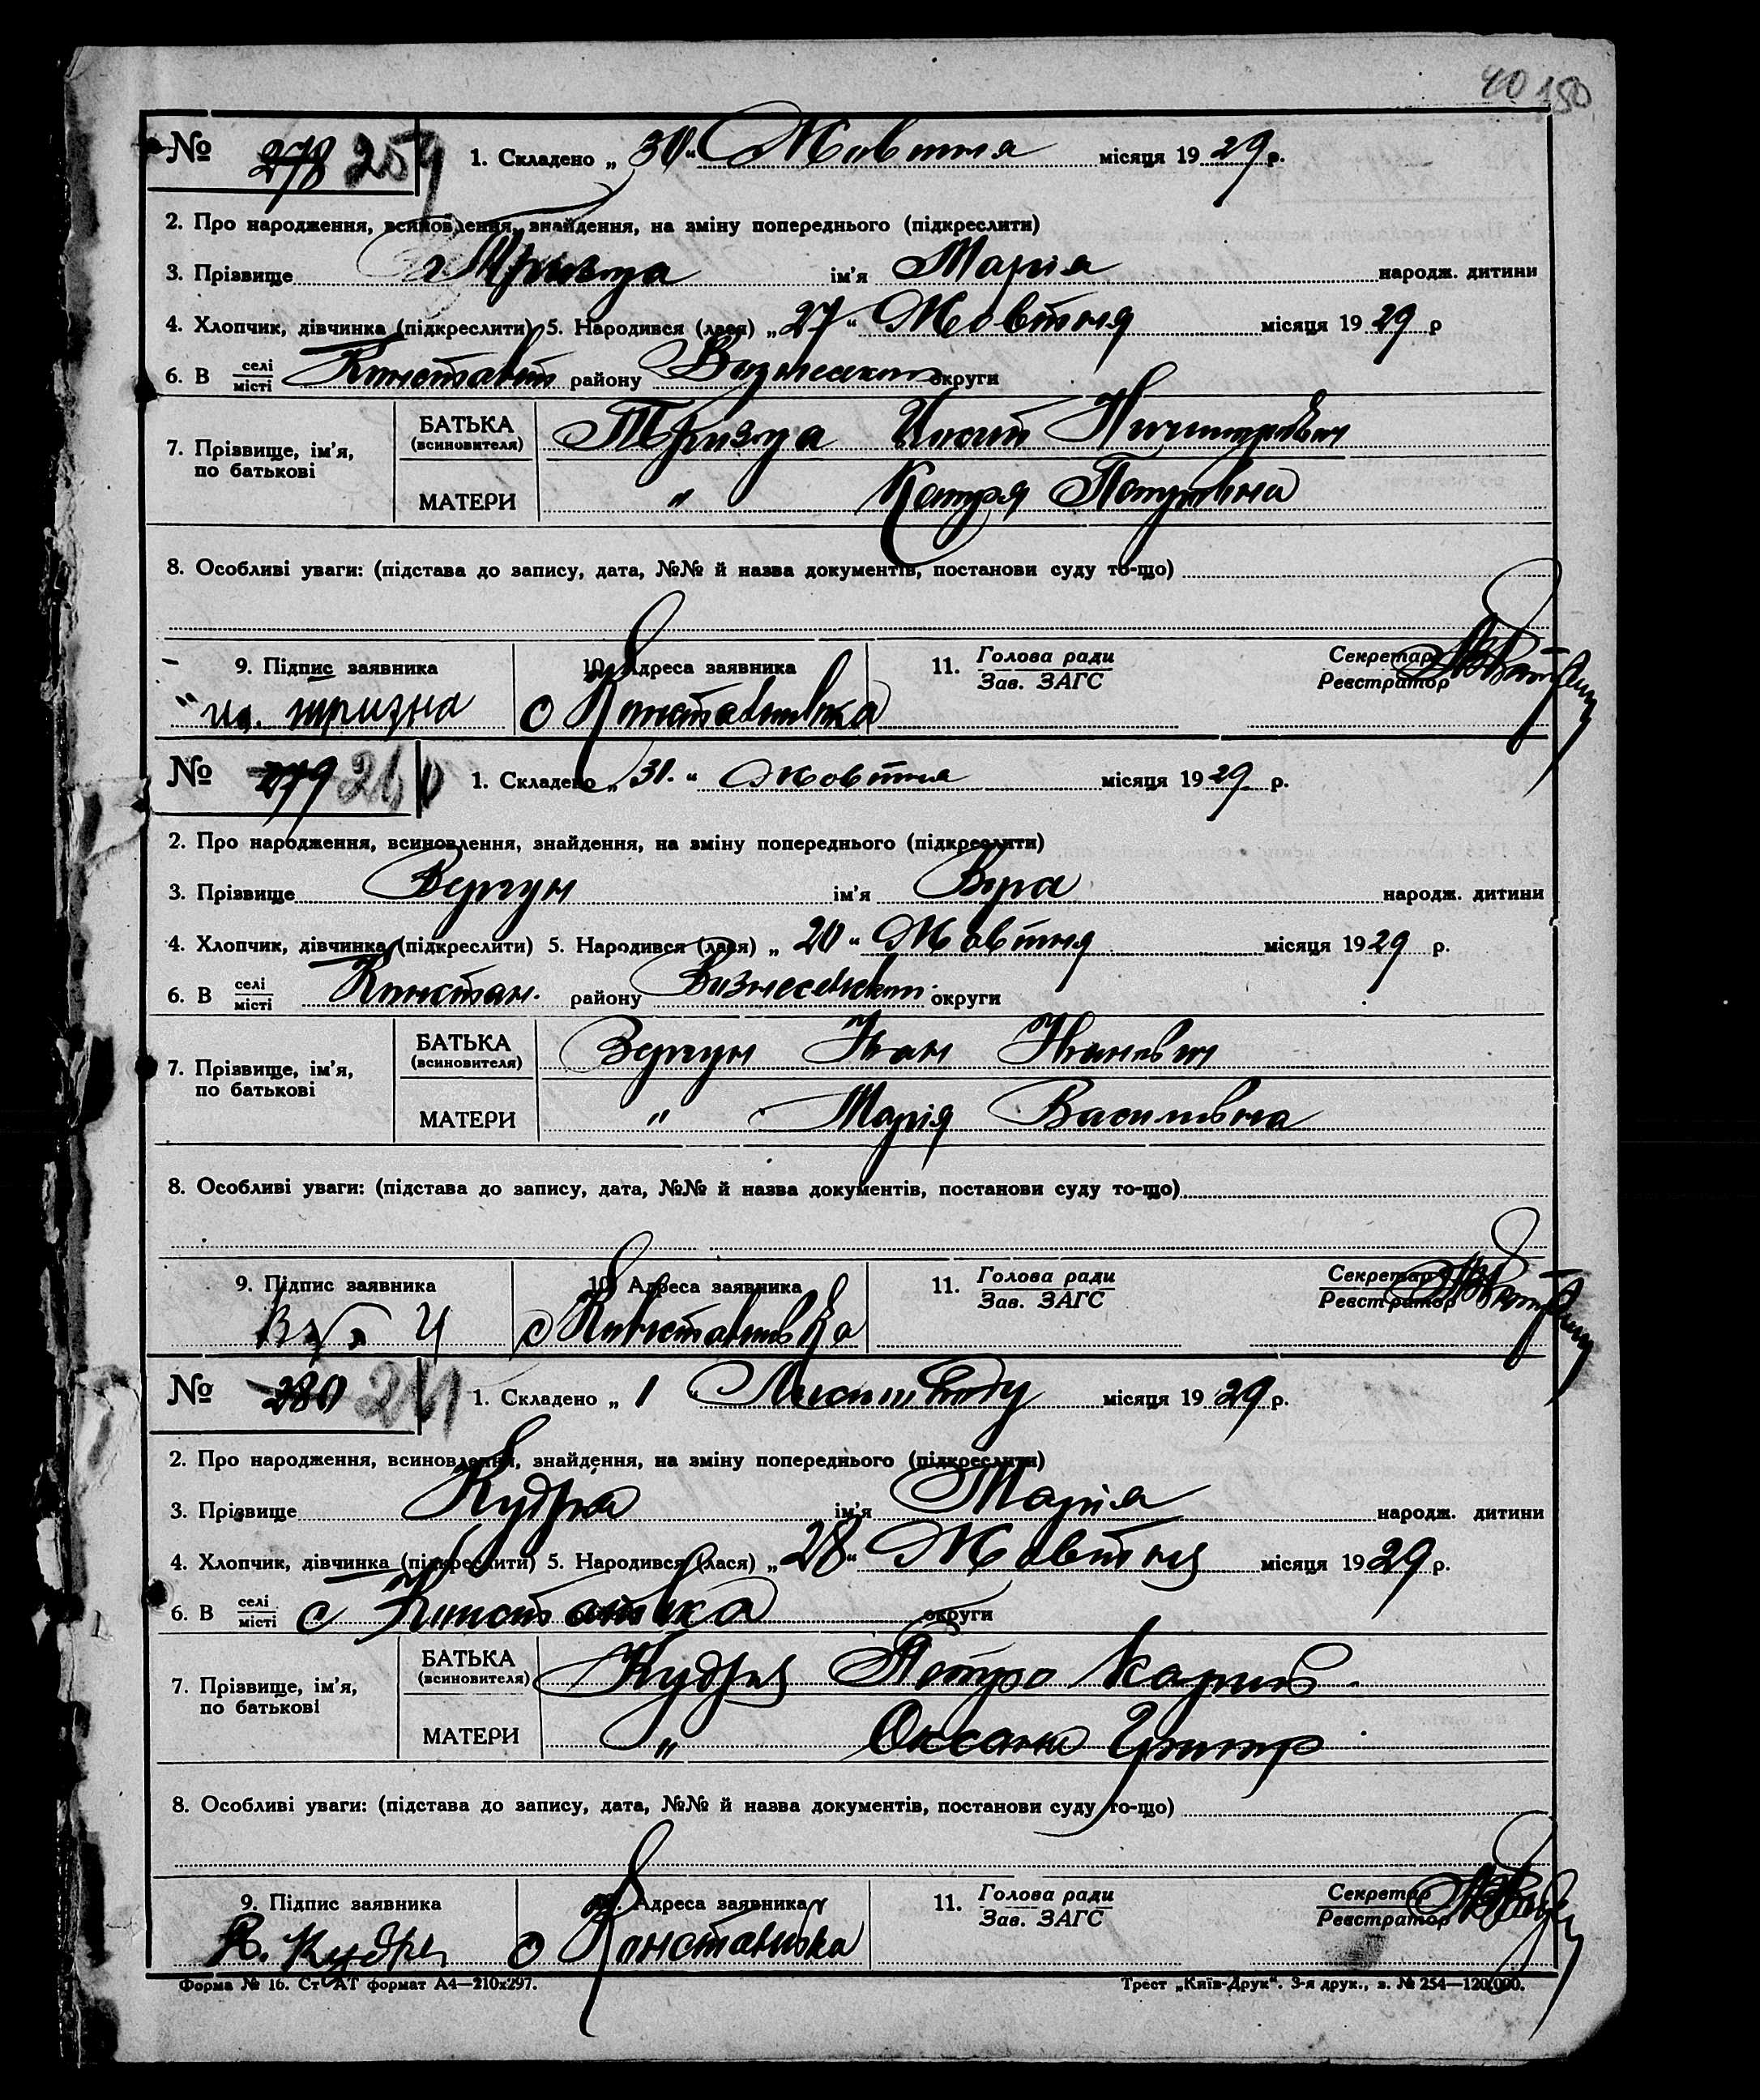 40 150
№ 278 259 1. Складено „ 30 “ Жовтня місяця 19 29 р.
2. Про народження, всиновлення, знайдення, на зміну попереднього (підкреслити)
3. Прізвище Тризна ім’я Марія народж. дитини
4. Хлопчик, дівчинка (підкреслити) 5. Народився (лася) „ 27 “ Жовтня місяця 19 29 р
6. В селі/місті району округи
7. Прізвище, ім’я, по батькові БАТЬКА (всиновителя) Тризна
МАТЕРИ " Катря
8. Особливі уваги: (підстава до запису, дата, №№ й назва документів, постанови суду то-що)
9. Підпис заявника 10. Адреса заявника 11. Голова ради/Зав. ЗАГС Секретар/Реєстратор
тризна с Константинівка
№ 279 260 1. Складено „ 31. “ Жовтня місяця 19 29 р.
2. Про народження, всиновлення, знайдення, на зміну попереднього (підкреслити)
3. Прізвище Вергун ім’я Віра народж. дитини
4. Хлопчик, дівчинка (підкреслити) 5. Народився (лася) „ 20 “ Жовтня місяця 19 29 р.
6. В селі/місті Констан. району Вознесенськ. округи
7. Прізвище, ім’я, по батькові БАТЬКА (всиновителя) Вергун Іван Іванович
МАТЕРИ " Марія Василівна
8. Особливі уваги: (підстава до запису, дата, №№ й назва документів, постанови суду то-що)
9. Підпис заявника 10. Адреса заявника 11. Голова ради/Зав. ЗАГС Секретар/Реєстратор
с Константинівка
№ 280 261 1. Складено „ 1 Листопаду місяця 19 29 р.
2. Про народження, всиновлення, знайдення, на зміну попереднього (підкреслити)
3. Прізвище Кудря ім’я Марія народж. дитини
4. Хлопчик, дівчинка (підкреслити) 5. Народився (лася) „ 28 “ Жовтня місяця 19 29 р.
6. В селі/місті с округи
7. Прізвище, ім’я, по батькові БАТЬКА (всиновителя) Кудря Петро
МАТЕРИ " Оксана
8. Особливі уваги: (підстава до запису, дата, №№ й назва документів, постанови суду то-що)
9. Підпис заявника 10. Адреса заявника 11. Голова ради/Зав. ЗАГС Секретар/Реєстратор
Кудря с Константинівка
Форма № 16. Ст АТ формат А4—210х297. Трест „Київ-Друк“. 3-я друк., з. № 254—120.000.